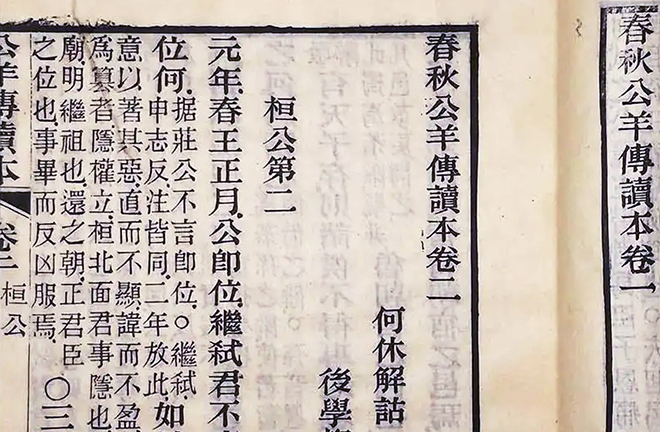 春秋公羊傳讀本卷一
春秋公羊傳讀本卷二
何休解詁
後學
桓公第二
元年.春王正月.公卽位.繼弒君.不
位何.据莊公不言卽位.○繼弒.如
申志反.注皆同.二年放此.
意以著其惡.直而不顯.諱而不盈.
爲篡者隱.權立.桓北面君事隱也
廟.明繼祖也.還之朝.正君臣
之位也.事畢而反凶服焉.○三
公羊傳讀本 卷二 桓公